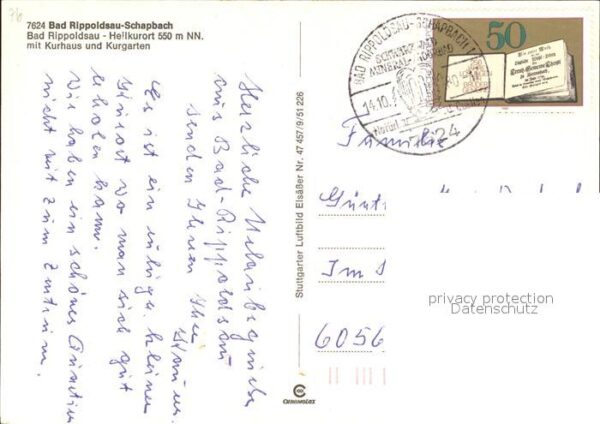 7624 Bad Rippoldsau-Schapbach
Bad Rippoldsau - Heilkurort 550 m NN.
mit Kurhaus und Kurgarten
Herzliche Urlaubsgrüße
aus Bad-Rippoldsau
senden Ihnen Ihre
Es ist ein ruhiger kleiner
Kurort wo man sich gut
erholen kann.
Wir haben ein schönes Quartier
nicht weit zum Zentrum.
Stuttgarter Luftbild Elsäßer Nr. 47 457/9/51 226
BAD RIPPOLDSAU-SCHAPBACH
MINERAL-
14.10.
7624
50
Familie
Günt
Im S
6056
privacy protection
Datenschutz